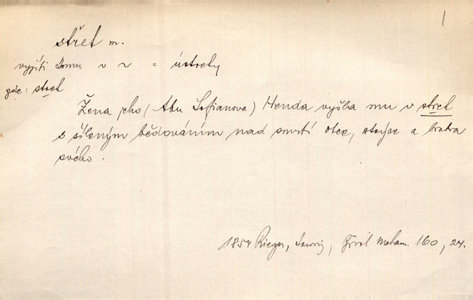 1
střet m.
vyjíti komu v ~ = ústrety
gde: stret
Žena jeho (Abu Sofianova) Henda vyšla mu v střet
s šíleným bědováním nad smrtí otce, strýce a bratra
svého.
1854 Rieger, Irwing, Život Moham. 160, 24.